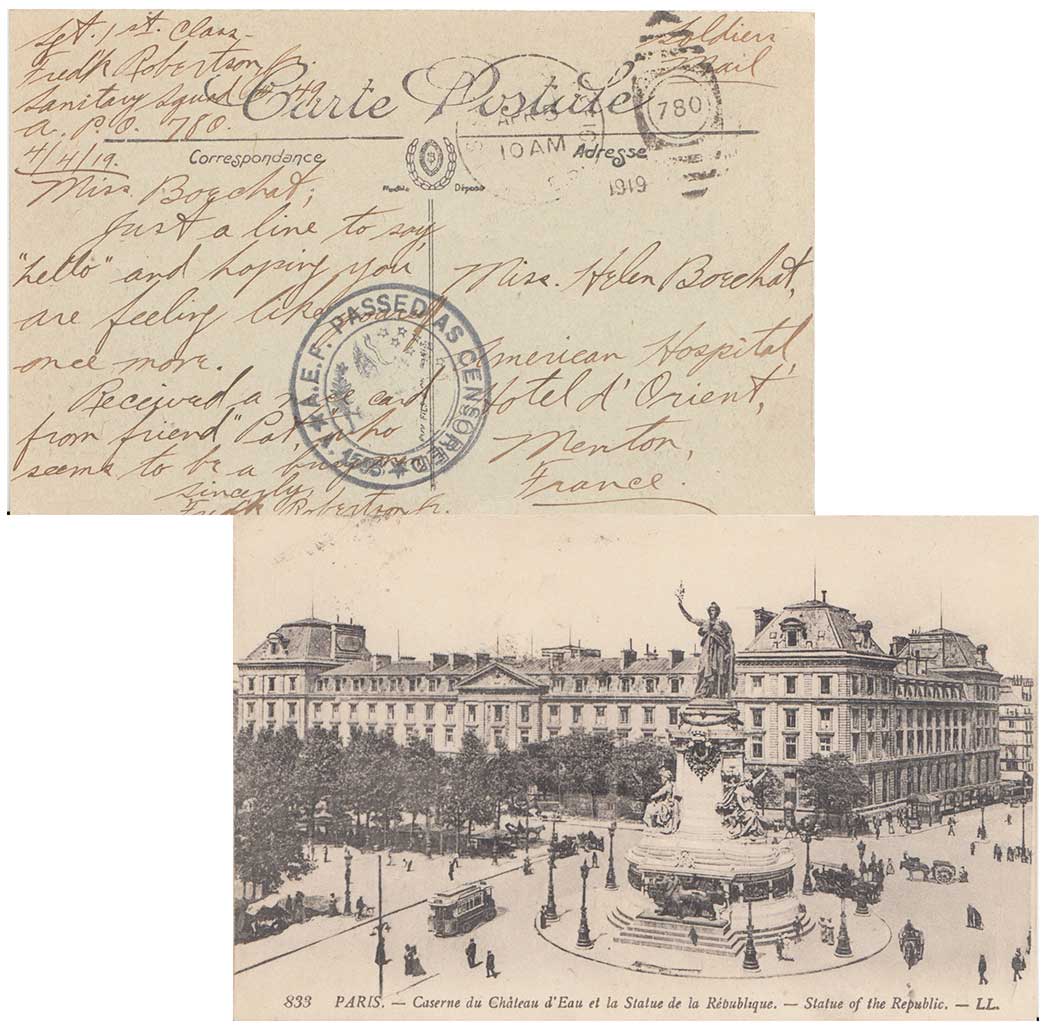 Sgt. 1st. Class-
Fredk Robertson Jr.
Sanitary Squad # 49
A. P. O. 780.
4/4/19.
Soldiers
Mail
Carte Postale
APR 5
10 AM
1919
780
Correspondance
Adresse
Modèle Déposé
Miss. Boechat,
Just a line to say
"hello" and hoping you
are feeling like
once more.
Received a nice card
from friend "Pat" who
seems to be a busy
sincerly,
Fredk Robertson Jr.
Miss. Helen Boechat,
American Hospital,
Hotel d'Orient,
Menton,
France.
A.E.F. PASSED AS CENSORED
833 PARIS. — Caserne du Château d'Eau et la Statue de la République. — Statue of the Republic. — LL.